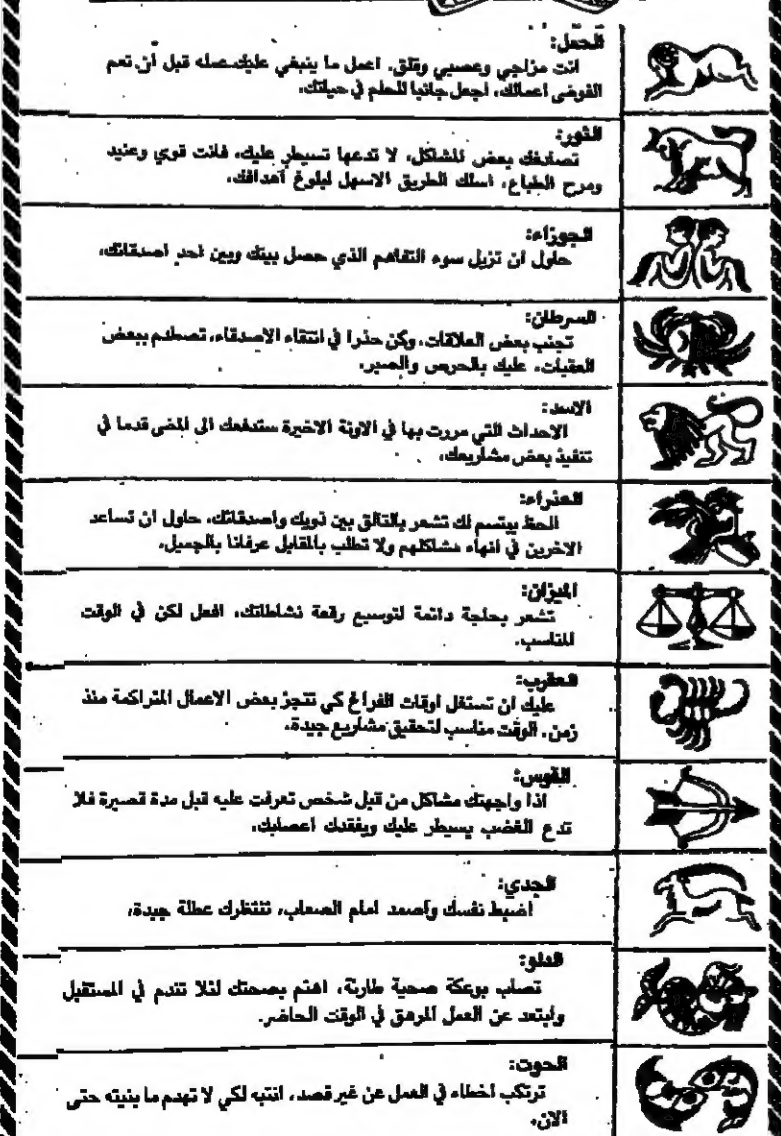 الحمل:
انت مزاجي وعصبي وقلق. اعمل ما ينبغي عليك عمله قبل أن تعم
الفوضى اعمالك، اجعل جانبا للحلم في حياتك.
الثور:
تصادفك بعض المشاكل، لا تدعها تسيطر عليك، فانت قوي وعنيد
ومرح الطباع، اسلك الطريق الاسهل لبلوغ أهدافك.
الجوزاء:
حاول ان تزيل سوء التفاهم الذي حصل بينك وبين احد اصدقائك.
السرطان:
تجنب بعض العلاقات، وكن حذرا في انتقاء الاصدقاء، تصطدم ببعض
العقبات، عليك بالحرص والصبر.
الاسد:
الاحداث التي مررت بها في الاونة الاخيرة ستدفعك الى المضي قدما في
تنفيذ بعض مشاريعك.
العذراء:
الحظ يبتسم لك تشعر بالتالق بين ذويك واصدقائك، حاول ان تساعد
الاخرين في انهاء مشاكلهم ولا تطلب بالمقابل عرفانا بالجميل.
الميزان:
تشعر بحاجة دائمة لتوسيع رقعة نشاطاتك، افعل لكن في الوقت
المناسب.
العقرب:
عليك ان تستغل اوقات الفراغ كي تنجز بعض الاعمال المتراكمة منذ
زمن. الوقت مناسب لتحقيق مشاريع جيدة.
القوس:
اذا واجهتك مشاكل من قبل شخص تعرفت عليه قبل مدة قصيرة فلا
تدع الغضب يسيطر عليك ويفقدك اعصابك.
الجدي:
اضبط نفسك واصمد امام الصعاب، تنتظرك عطلة جيدة.
الدلو:
تصاب بوعكة صحية طارئة، اهتم بصحتك لئلا تندم في المستقبل
وابتعد عن العمل المرهق في الوقت الحاضر.
الحوت:
ترتكب اخطاء في العمل عن غير قصد، انتبه لكي لا تهدم ما بنيته حتى
الان.